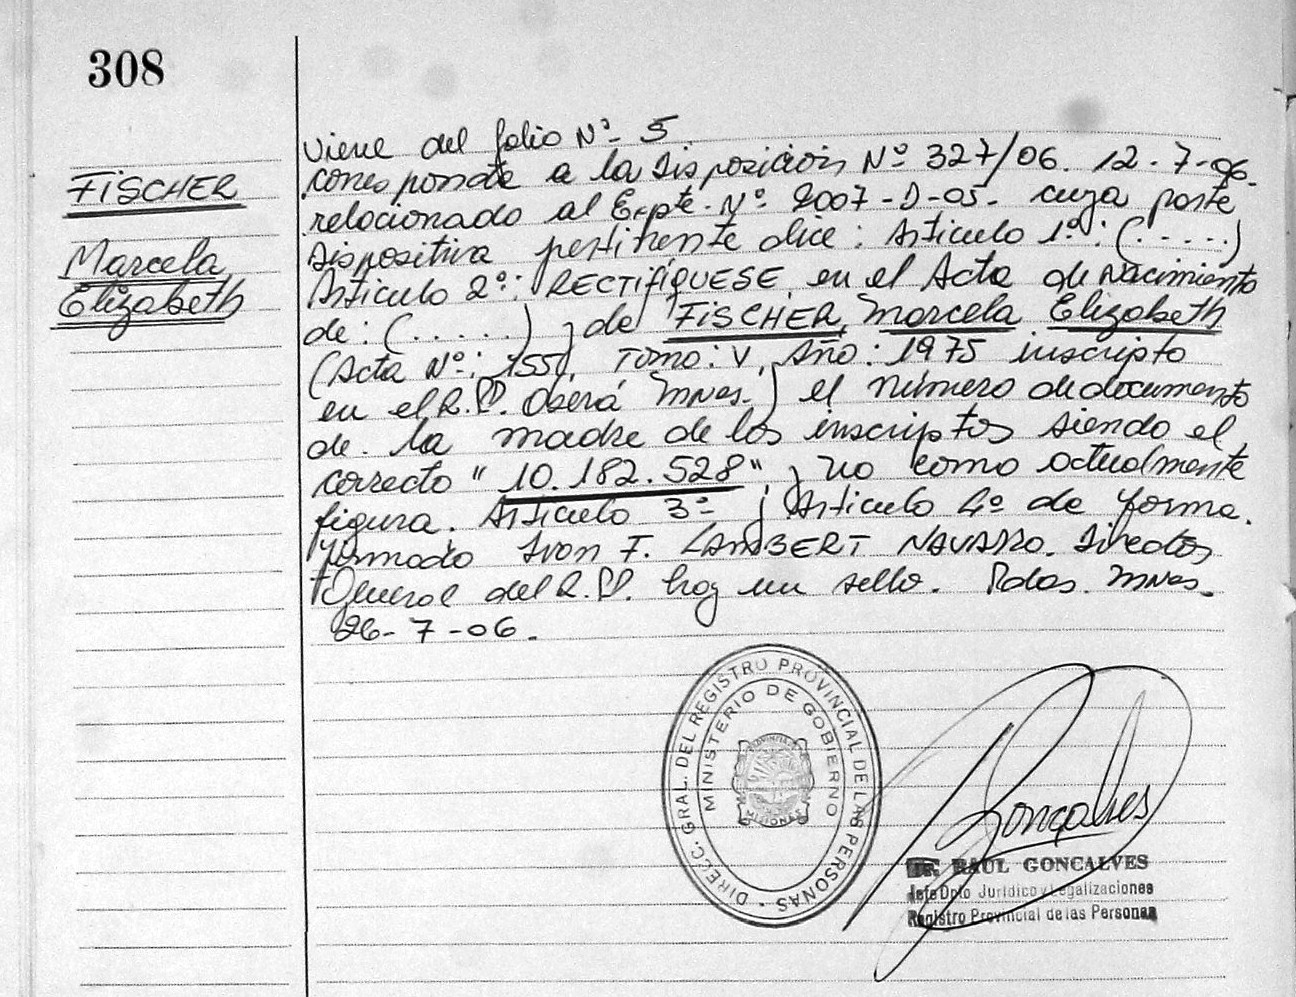 308
FISCHER
Marcela
Elizabeth
viene del folio Nº 5
corresponde a la Disposición Nº 327/06. 12-7-06.
relacionado al Expte. Nº 2007-D-05- cuya parte
Dispositiva pertinente dice: Artículo 1º: (.....)
Artículo 2º: RECTIFÍQUESE en el Acta de Nacimiento
de: (.....) y de FISCHER, Marcela Elizabeth
(Acta Nº: 1550, Tomo: V, Año: 1975 inscripto
en el R.P. Oberá Mnes.) el número de documento
de la madre de los inscriptos siendo el
correcto "10.182.528" y no como actualmente
figura. Artículo 3º y Artículo 4º de forma.
Firmado Ivon F. LAMBERT NAVARRO. Director
General del R.P. hay un sello. Pdas. Mnes.
26-7-06.
DIRECC. GRAL. DEL REGISTRO PROVINCIAL DE LAS PERSONAS
MINISTERIO DE GOBIERNO
PROVINCIA
MISIONES
Goncalves
Dr. RAUL GONCALVES
Jefe Dpto Jurídico y Legalizaciones
Registro Provincial de las Personas